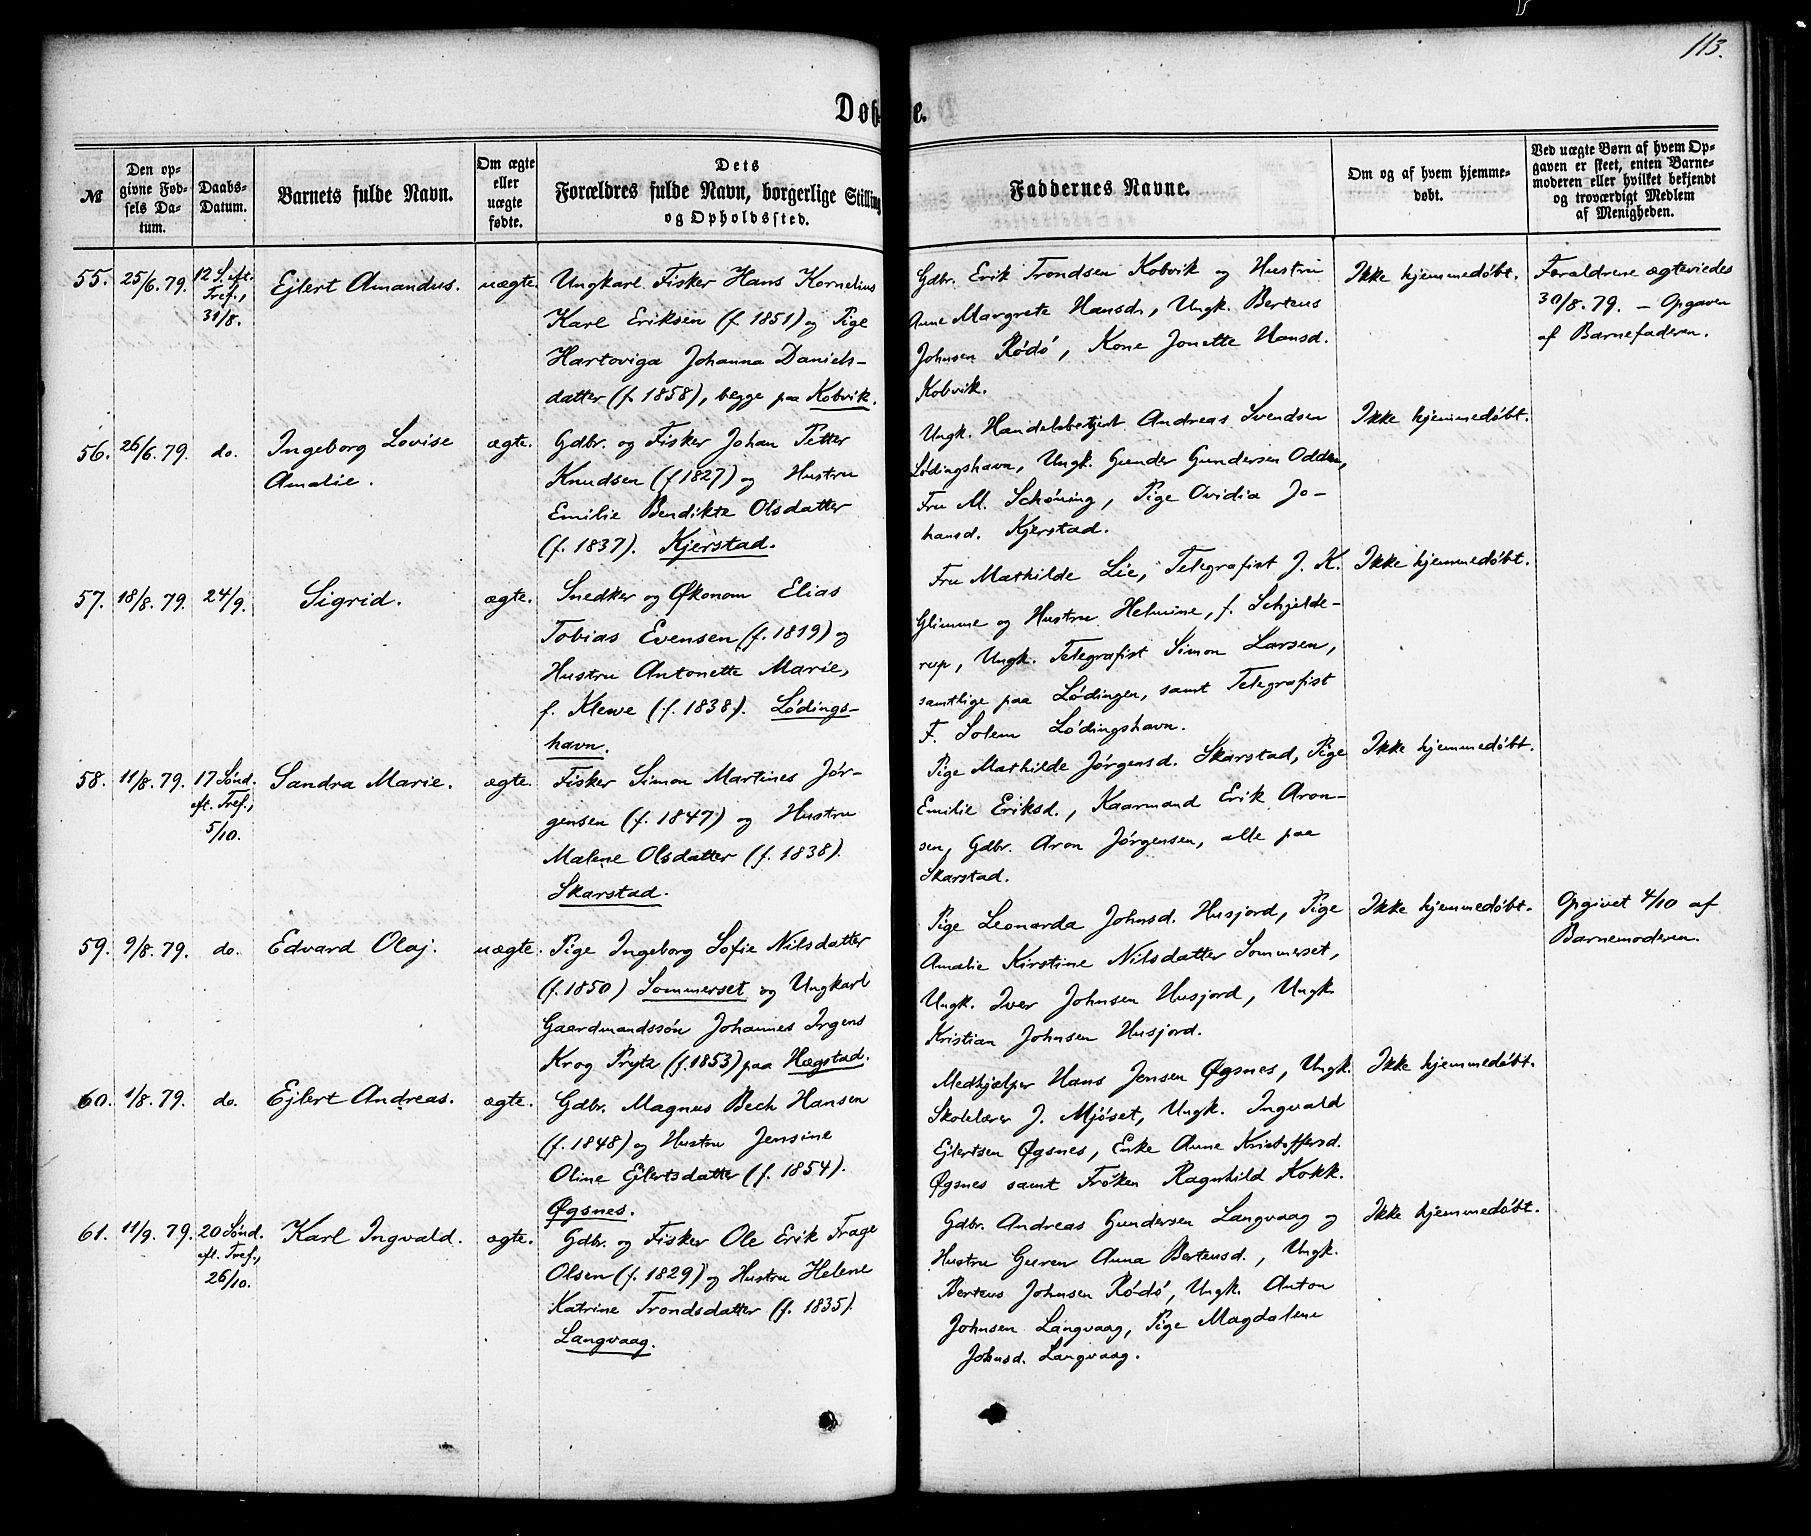 113.
Døbte.
№
Den op-
givne Fød-
sels Da-
tum.
Daabs-
Datum.
Barnets fulde Navn.
Om ægte
eller
uægte
fødte.
Dets
Forældres fulde Navn, borgerlige Stilling
og Opholdssted.
Faddernes Navne.
Om og af hvem hjemme-
døbt.
Ved uægte Børn af hvem Op-
gaven er skeet, enten Barne-
moderen eller hvilket bekjendt
og troværdigt Medlem
af Menigheden.
55. 25/6. 79.
12 S. eft.
Tref.,
31/8.
Ejlert Amandus.
uægte.
Ungkarl Fisker Hans Kornelius
Karl Eriksen (f. 1851) og Pige
Hartviga Johanna Daniels-
datter (f. 1858), begge paa Kobvik.
Gdbr. Erik Trondsen Kobvik og Hustru
Anne Margrete Hansd., Ungk. Berteus
Johnsen Rødø, Kone Jonette Hansd.
Kobvik.
Ikke hjemmedøbt.
Forældrene ægteviedes
30/8. 79. – Opgaven
af Barnefaderen.
56. 26/6. 79.
do.
Ingeborg Lovise
Amalie.
ægte.
Gdbr. og Fisker Johan Petter
Knudsen (f. 1827) og Hustru
Emilie Bendikte Olsdatter
(f. 1837). Kjerstad.
Ungk. Handelsbetjent Andreas Svendsen
Lødingshavn, Ungk. Gunder Gundersen Odden,
Fru M. Schøning, Pige Ovidia Jo-
hansd. Kjerstad.
Ikke hjemmedøbt.
57. 18/8. 79.
24/9.
Sigrid.
ægte.
Snedker og Økonom Elias
Tobias Evensen (f. 1819) og
Hustru Antonette Marie,
f. Klewe (f. 1838). Lødings-
havn.
Fru Mathilde Lie, Telegrafist J. K.
Glimme og Hustru Helmine, f. Schjelde-
rup, Ungk. Telegrafist Simon Larsen,
samtlige paa Lødingen, samt Telegrafist
F. Solem Lødingshavn.
Ikke hjemmedøbt.
58. 11/8. 79.
17 Sønd.
eft. Tref.,
5/10.
Sandra Marie.
ægte.
Fisker Simon Martines Jør-
gensen (f. 1847) og Hustru
Malene Olsdatter (f. 1838).
Skarstad.
Pige Mathilde Jørgensd. Skarstad, Pige
Emilie Eriksd., Kaarmand Erik Aron-
sen, Gdbr. Aron Jørgensen, alle paa
Skarstad.
Ikke hjemmedøbt.
59. 9/8. 79.
do.
Edvard Olaj.
uægte.
Pige Ingeborg Sofie Nilsdatter
(f. 1850) Sommerset og Ungkarl
Gaardmandssøn Johannes Irgens
Krog Prytz (f. 1853) paa Hægstad.
Pige Leonarda Johnsd. Husjord, Pige
Amalie Kirstine Nilsdatter Sommerset,
Ungk. Iver Johnsen Husjord, Ungk.
Kristian Johnsen Husjord.
Ikke hjemmedøbt.
Opgivet 4/10 af
Barnemoderen.
60. 1/8. 79.
do.
Ejlert Andreas.
ægte.
Gdbr. Magnus Bech Hansen
(f. 1848) og Hustru Jensine
Oline Ejlertsdatter (f. 1854).
Øgsnes.
Medhjælper Hans Jensen Øgsnes, Ungk.
Skolelærer J. Mjøset, Ungk. Ingvald
Ejlertsen Øgsnes, Enke Anne Kristoffersd.
Øgsnes samt Frøken Ragnhild Kokk.
Ikke hjemmedøbt.
61. 11/9. 79.
20 Sønd.
eft. Tref.,
26/10.
Karl Ingvald.
ægte.
Gdbr. og Fisker Ole Erik Frage
Olsen (f. 1829) og Hustru Helene
Katrine Trondsdatter (f. 1835).
Langvaag.
Gdbr. Andreas Gundersen Langvaag og
Hustru Guren Anna Berteusd., Ungk.
Berteus Johnsen Rødø, Ungk. Anton
Johnsen Langvaag, Pige Magdalene
Johnsd. Langvaag.
Ikke hjemmedøbt.